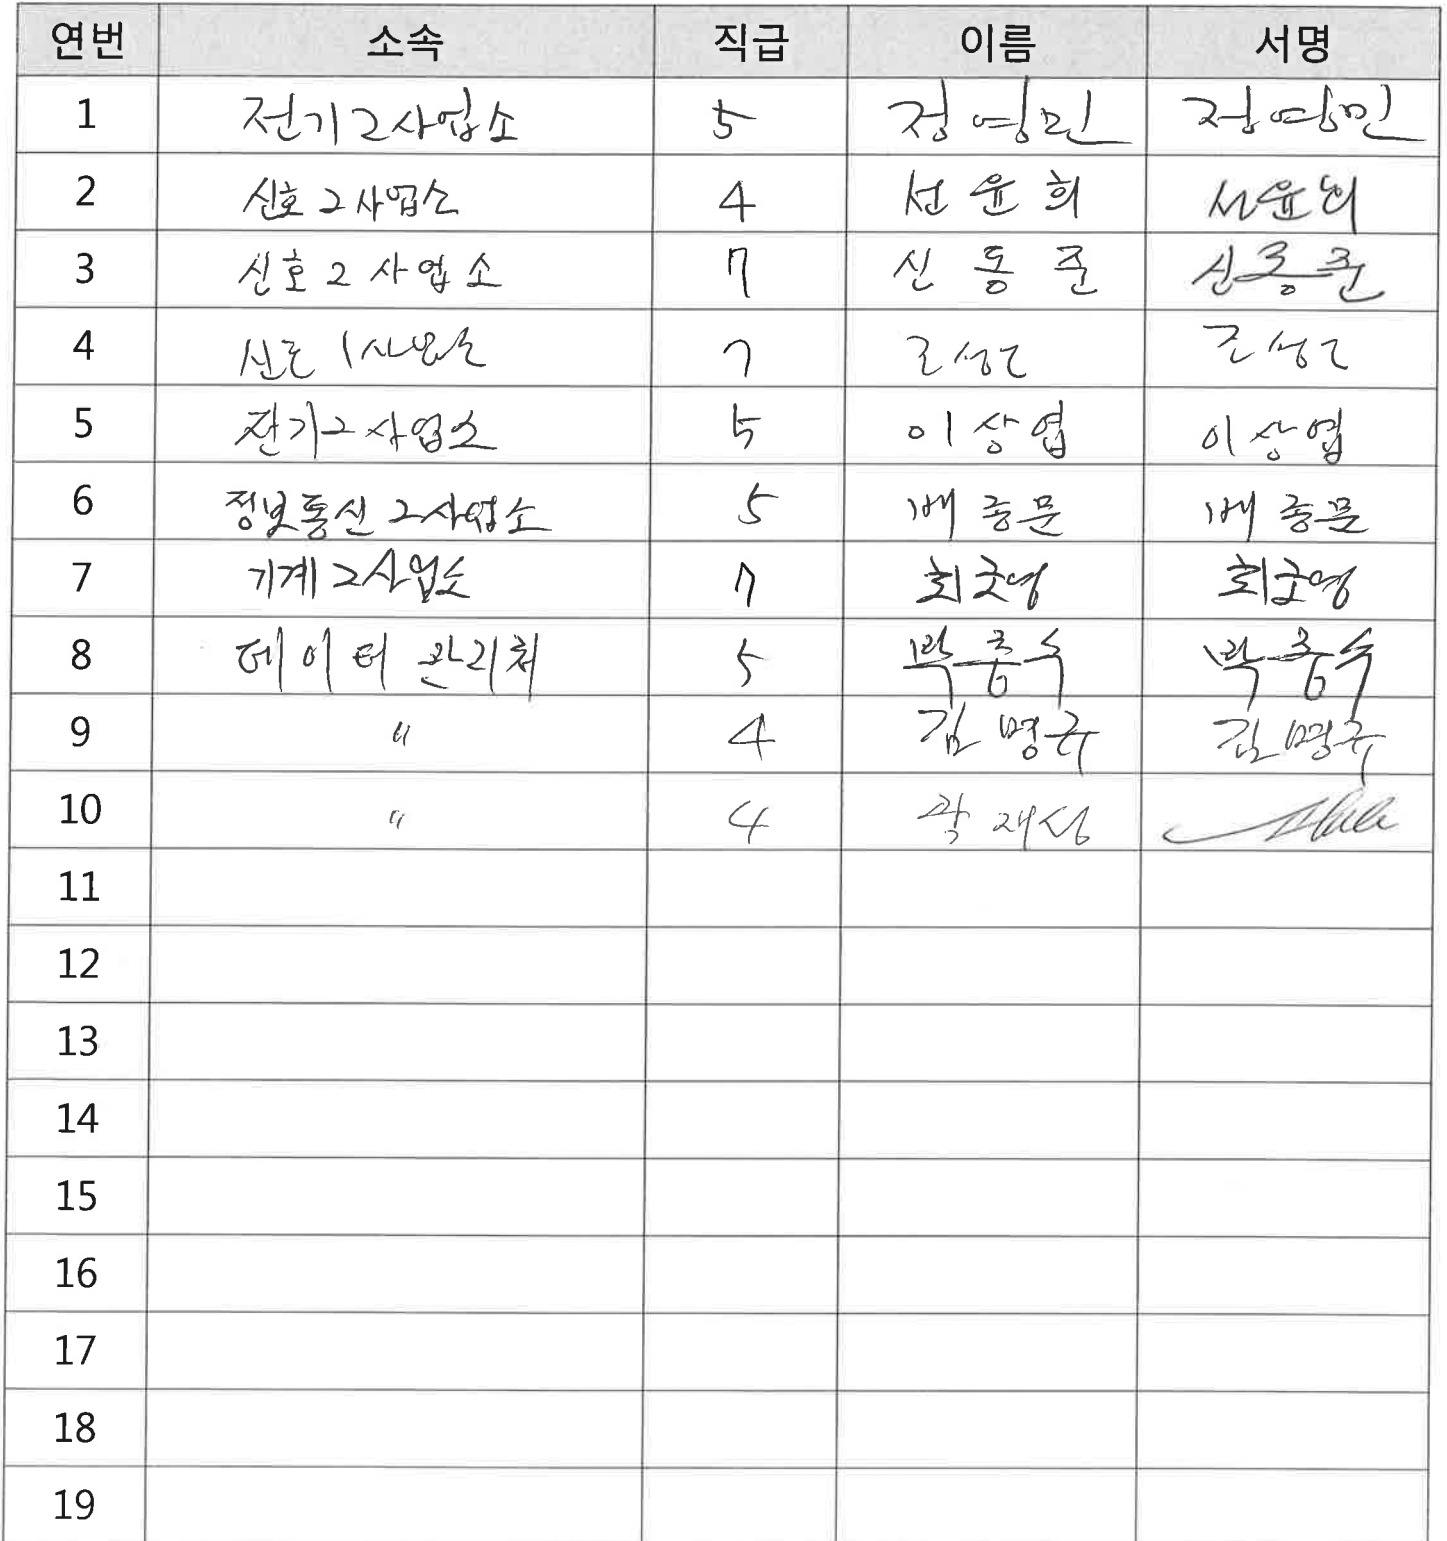 연번 소속 직급 이름 서명
1 전기2사업소 5 정영민 정영민
2 신호2사업소 4 선윤희 선윤희
3 신호2사업소 7 신동준 신동준
4 신호1사업소 7
5 전기2사업소 5 이상엽 이상엽
6 정보통신2사업소 5 배종문 배종문
7 기계2사업소 7 최준영 최준영
8 데이터관리처 5 박종수 박종수
9 〃 4 김명규 김명규
10 〃 4 곽재성
11
12
13
14
15
16
17
18
19